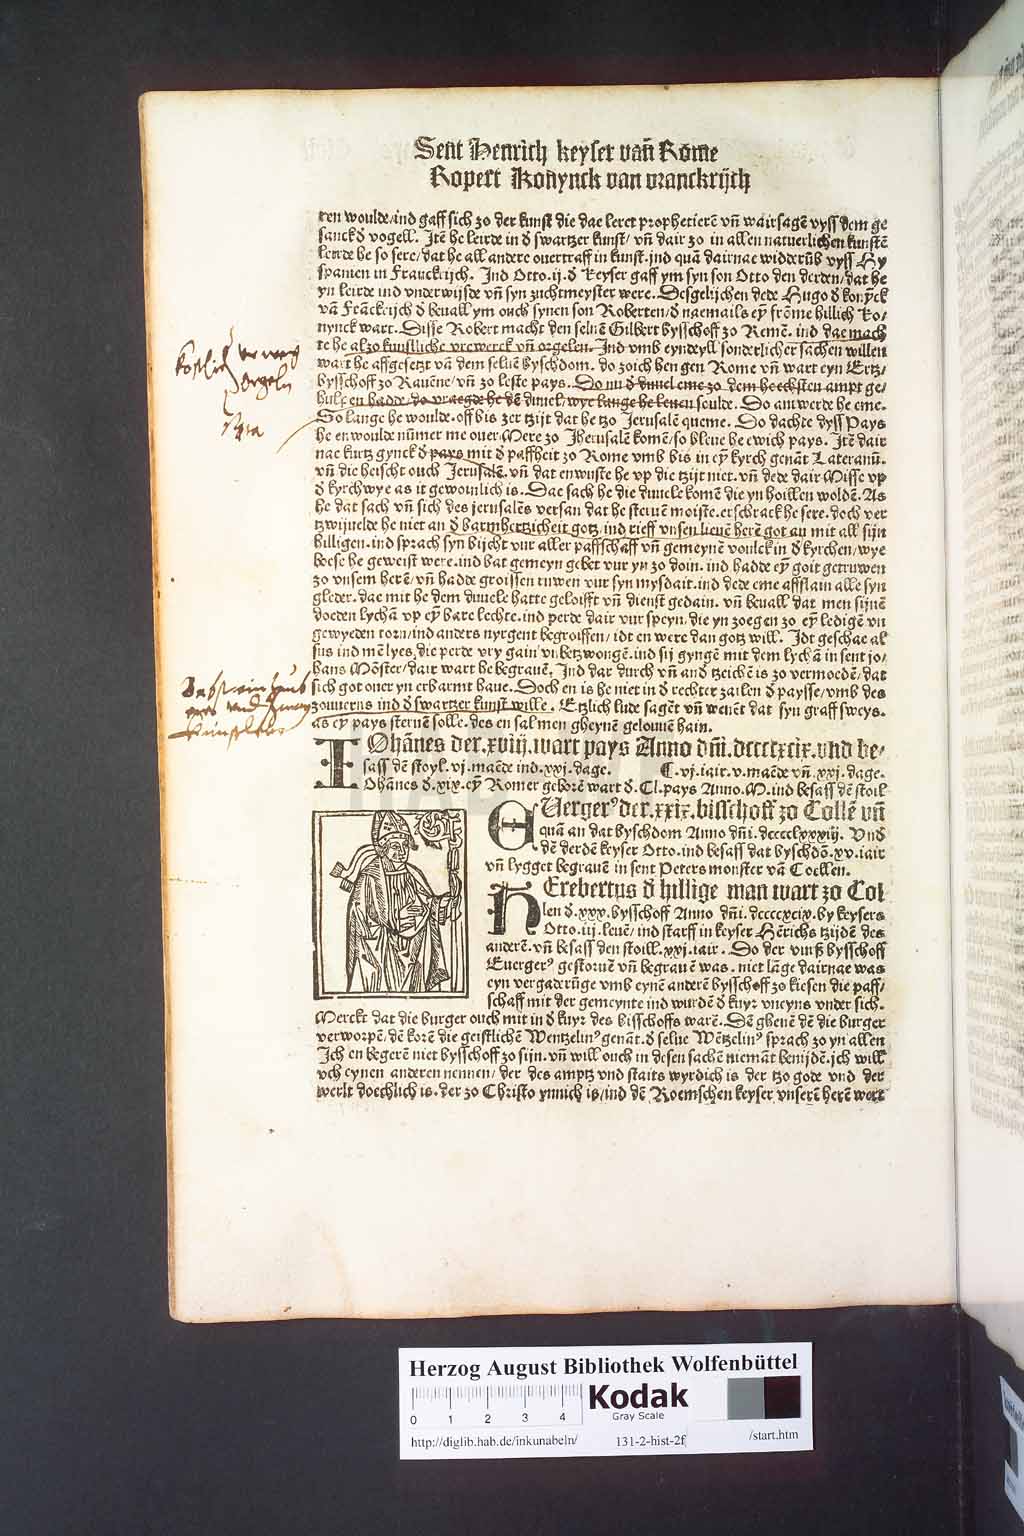 Sent Henrich keyser vañ Rome
Ropert Konynck van vranckrijch
ren woulde/ind gaff sich zo der kunst die dae leret prophetierē vñ wairsagē vyss dem ge
sanck đ vogell. Itē he leirde in đ swartzer kunst/ vñ dair zo in allen natuerlichen kunstē
leirde he so sere/dat he all andere ouertraff in kunst.ind quā dairnae widderūb vyss Hy
spanien in Franckrijch. Ind Otto.ij.đ keyser gaff ym syn son Otto den derden/dat he
yn leirde ind vnderwijsde vñ syn zuchtmeyster were. Desgelijchen dede Hugo đ konȳck
vā Frāckrijch đ beuall ym ouch synen son Roberten/đ naemails eȳ frōme hillich ko/
nynck wart. Disse Robert macht den seluē Gilbert bysschoff zo Remē. ind dae mach
te he alzo kunstliche vrewerck vñ orgelen. Ind vmb eyndeyll sonderlicher sachen willen
wart he affgesetzt vā dem seluē byschdom. do zoich hen gen Rome vñ wart eyn Ertz/
bysschoff zo Rauēne/vñ zo leste pays. Do nu đ duuel eme zo dem hoechsten ampt ge/
hulpen hadde/do vraegde he dē duuel/wye lange he leuen soulde. Do antwerde he eme.
So lange he woulde.off bis zer tzijt dat he tzo Jerusalē queme. Do dachte dyss Pays
he en woulde nūmer me ouer Mere zo Jherusalē komē/so bleue he ewich pays. Itē dair
nae kurtz gynck đ pays mit đ paffheit zo Rome vmb bis in eȳ kyrch genāt Lateranū.
vñ die heischt ouch Jerusalē. vñ dat enwuste he vp die tzijt niet. vñ dede dair Misse vp
đ kyrchwye as it gewoinlich is. Dae sach he die duuele komē die yn hoillen woldē. As
he dat sach vñ sich des jerusalēs versan dat he steruen moiste.erschrack he sere. doch ver
tzwijuelde he niet an đ barmhertzicheit gotz.ind rieff vnsen lieuē herē got an mit all sijn
hilligen.ind sprach syn bijcht vur aller paffschaff vñ gemeynē voulck in đ kyrchen/wye
boese he geweist were.ind bat gemeyn gebet vur yn zo doin. ind hadde eȳ goit getruwen
zo vnsem herē/vñ hadde groissen ruwen vur syn mysdait.ind dede eme affslain alle syn
gleder. dae mit he dem duuele hatte geloifft vñ dienst gedain. vñ beuall dat men sijnē
doeden lychā vp eȳ bare lechte.ind perde dair vur speyn/die yn zoegen zo eȳ ledigē vn
gewyeden torn/ind anders nyrgent begroiffen/ idt en were dan gotz will. Idt geschae al
sus ind mē lyes die perde vry gain vnbetzwongē.ind sij gyngē mit dem lychā in sent jo/
hans Mōster/dair wart he begrauē. Ind dar durch vñ and tzeichē is zo vermoedē/dat
sich got ouer yn erbarmt haue. Doch en is he niet in đ rechter zailen đ paysse/vmb des
zouuerns ind đ swartzer kunst wille. Etzlich lude sagēt vñ wenēt dat syn graff sweys.
as eȳ pays steruē solle.des en sal men gheynē gelouuē hain.
IOhānes der.xviij.wart pays Anno dñi.dccccxcix.vnd be/
sass dē stoyl.vj.maēde ind.xxj.dage. C.vj.iair.v.maēde vñ.xxj.dage.
IOhānes đ.xix.eȳ Romer geborē wart đ Cl.pays Anno.M.ind besass dē stoil
EVerger⁹ der.xxix.bisschoff zo Collē vñ
quā an dat byschdom Anno dñi.dcccclxxxiij. Vnd
dē derdē keyser Otto.ind besass dat byschdō.xv.iair
vñ lygget begrauē in sent Peters monster vā Coellen.
HErebertus đ hillige man wart zo Col
len đ.xxx.bysschoff Anno dñi.dccccxcix.by keysers
Otto.iij.leuē/ ind starff in keyser Hērichs tzijdē des
anderē.vñ besass den stoill.xxj.iair. Do der vurß bysschoff
Euerger⁹ gestoruē vñ begrauē was. niet lāge dairnae was
eyn vergaderūge vmb eynē anderē bysschoff zo kiesen die paff/
schaff mit der gemeynte ind wurdē đ kuyr vneyns vnder sich.
Merckt dat die burger ouch mit in đ kuyr des bisschoffs warē. Dē ghenē dē die burger
verworpē.dē korē die geistlichē Wentzelin⁹ genāt.đ selue Wētzelin⁹ sprach zo yn allen
Ich en begerē niet bysschoff zo sijn. vñ will ouch in desen sachē niemāt benijdē.ich will
vch eynen anderen nennen/ der des amptz vnd staits wyrdich is der tzo gode vnd der
werlt doechlich is.der zo Christo ynnich is/ind dē Roemschen keyser vnserē herē wert
Herzog August Bibliothek Wolfenbüttel
0 1 2 3 4
Kodak
Gray Scale
http://diglib.hab.de/inkunabeln/ 131-2-hist-2f /start.htm